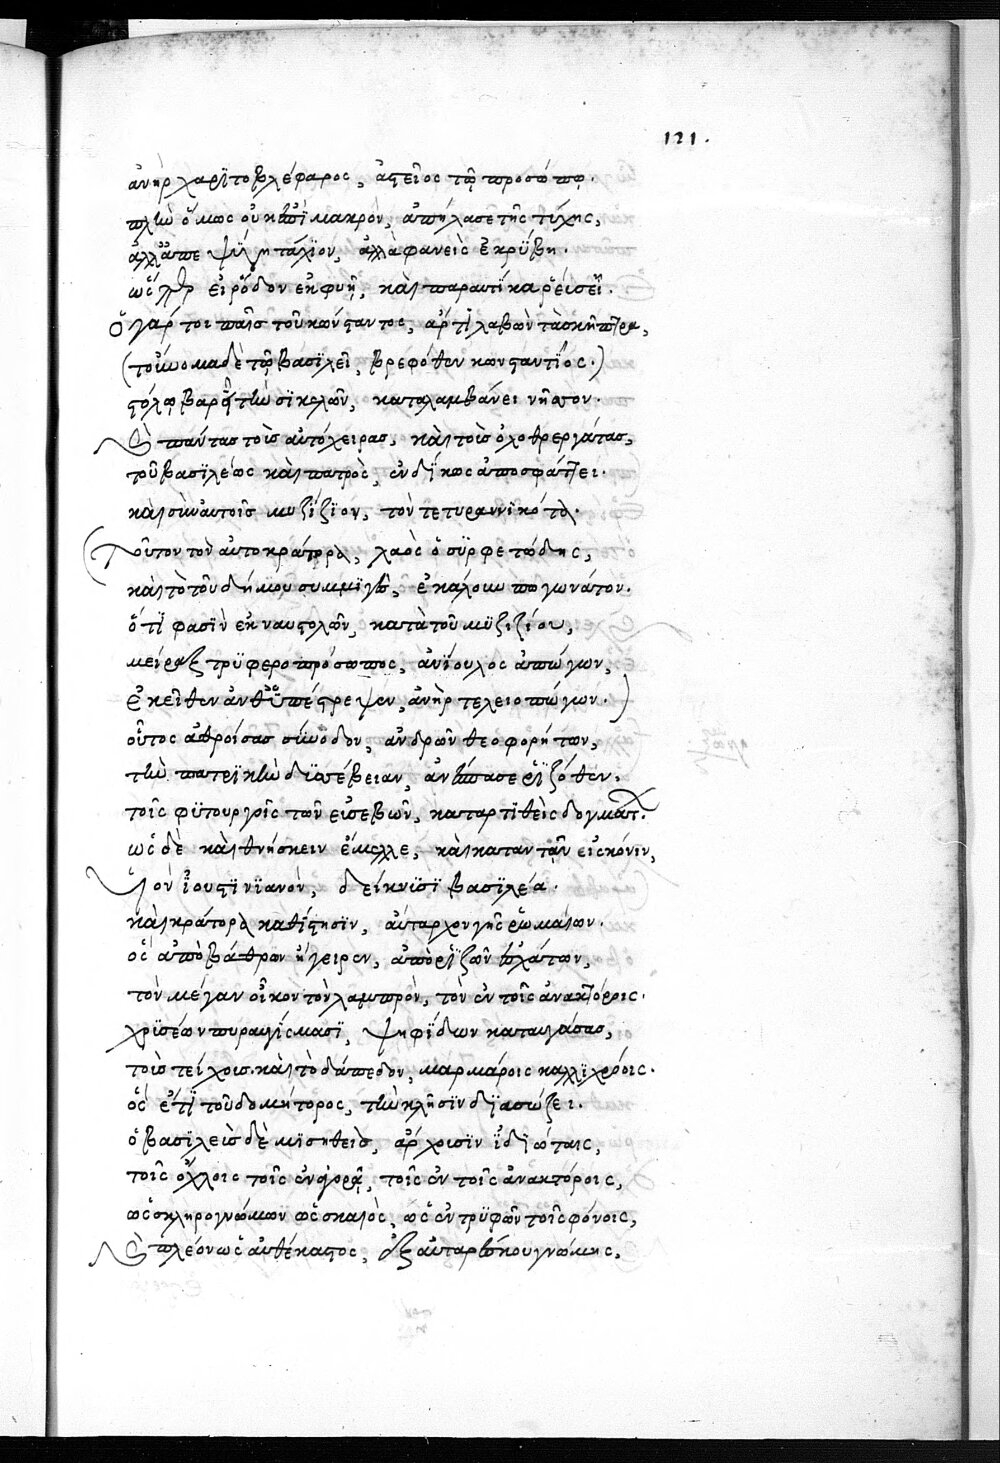 121.
ἀνὴρ χαριτοβλέφαρος, ἀστεῖος τῷ προσώπῳ.
πλὴν ὅμως οὐκ ἐπὶ μακρὸν, ἀπήλασε τῆς τύχης,
ἀλλ' ἀπεψύγη τάχιον, ἀλλὰ φανεὶς ἐκρύβη.
ὡς εἰ ῥόδον ἐκφυῆ, καὶ παραυτίκα ῥεύσει.
ὁ γάρ τοι παῖς τοῦ κώνσταντος, ἄρτι λαβὼν τὰ σκῆπτρα,
(τοὔνομα δὲ τῷ βασιλεῖ, βρεφόθεν κωνσταντῖος.)
στόλῳ βαρεῖ τὴν σικελῶν, καταλαμβάνει νῆσον.
καὶ πάντας τοὺς αὐτόχειρας, καὶ τοὺς ὀλοθρεργάτας,
τοῦ βασιλέως καὶ πατρὸς, ἐνδίκως ἀποσφάττει.
καὶ σὺν αὐτοῖς μυζίζιον, τόν τε τυραννικότα.
(τοῦτον τὸν αὐτοκράτορα, λαὸς ὁ συρφετώδης,
καὶ τὸ τοῦ δήμου συμμιγὲς, ἐκάλουν πωγωνάτον.
ὅτι φασὶν ἐκναυστολῶν, κατὰ τοῦ μυζιζίου,
μεῖραξ τρυφεροπρόσωπος, ἀνίουλος ἀπώγων,
ἐκεῖθεν ἀνθυπέστρεψεν, ἀνὴρ τελειοπώγων.)
οὗτος ἀθροίσας σύνοδον, ἀνδρῶν θεοφορήτων,
τὴν πατρικὴν δυσσέβειαν, ἀνέσπασε ῥιζόθεν.
τοῖς φυτουργοῖς τῶν εὐσεβῶν, καταρτιθεὶς δογμάτων.
ὡς δὲ καὶ θνήσκειν ἔμελλε, καὶ καταντᾶν εἰς κόνιν,
υἱὸν ἰουστινιανὸν, δείκνυσι βασιλέα.
καὶ κράτορα καθίστησιν, αὔταρχον γῆς ῥωμαίων.
ὃς ἀπὸ βάθρων ἤγειρεν, ἀπὸ ῥιζῶν ἐσχάτων,
τὸν μέγαν οἶκον τὸν λαμπρὸν, τὸν ἐν τοῖς ἀνακτόροις.
χρυσέων πυραυγίσμασι, ψηφίδων καταυγάσας,
τοὺς τείχους. καὶ τὸ δάπεδον, μαρμάροις καλλιχρόοις.
ὃς ἔτι τοῦ δομήτορος, τὴν κλῆσιν διασώζει.
ὁ βασιλεὺς δὲ μισηθεὶς, ἄρχουσιν ἰδιώταις,
τοῖς ὄχλοις τοῖς ἐν ἀγορᾷ, τοῖς ἐν τοῖς ἀνακτόροις,
ὡς σκληρογνώμων ὡς σκαιὸς, ὡς ἐντρυφῶν τοῖς φόνοις,
καὶ πλέον ὡς αὐθέκαστος, ἐξ αὐταρέσκου γνώμης,